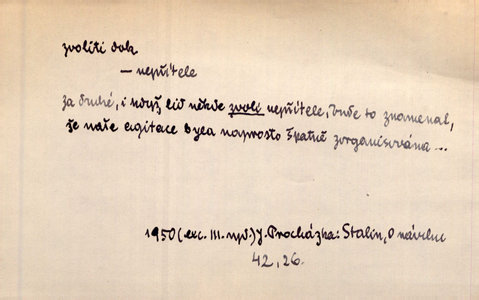 zvoliti dok
— nepřítele
za druhé, i když lid někde zvolí nepřítele, bude to znamenat,
že naše agitace byla naprosto špatně zorganisována ...
1950 (exc. III. vyd.) J. Procházka: Stalin, O návrhu
42, 26.